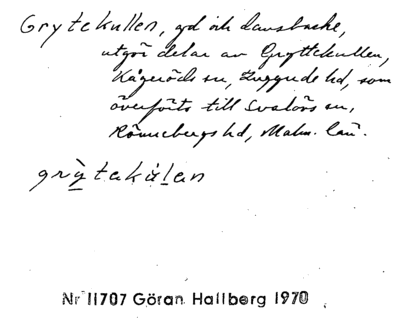 Grytekullen, gd och dansbacke,
utgör delar av Gryttekullen,
Kågeröds sn, Luggude hd, som
överförts till Svalövs sn,
Rönnebergs hd, Malm. län.
grỳtakùlen
Nr 11707 Göran Hallberg 1970